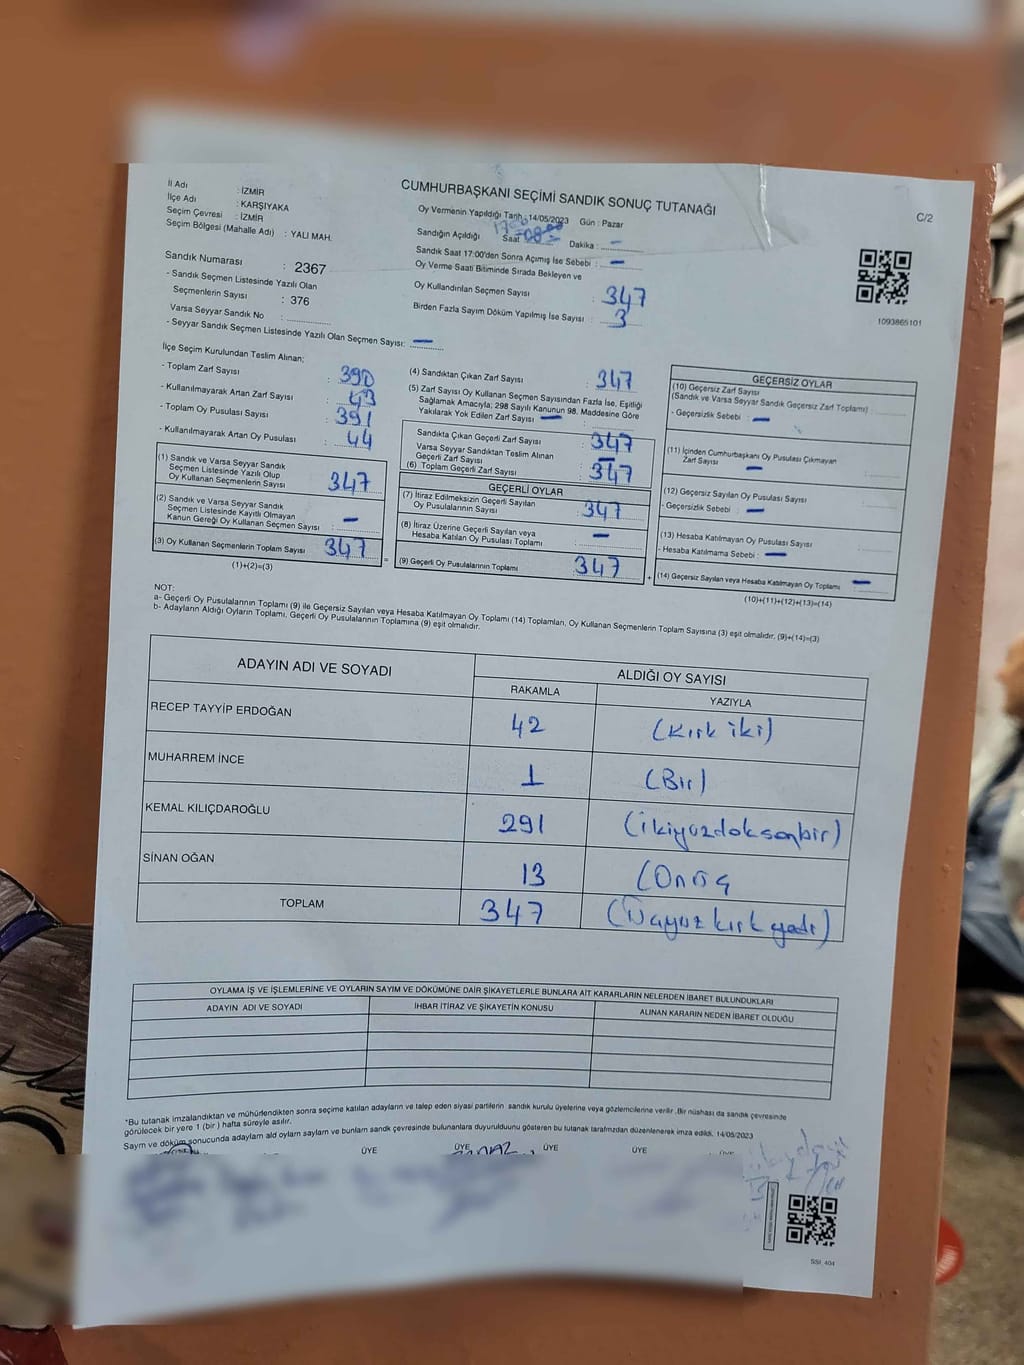 CUMHURBAŞKANI SEÇİMİ SANDIK SONUÇ TUTANAĞI
C/2
İl Adı : İZMİR
İlçe Adı : KARŞIYAKA
Seçim Çevresi : İZMİR
Seçim Bölgesi (Mahalle Adı) : YALI MAH.
Sandık Numarası : 2367
- Sandık Seçmen Listesinde Yazılı Olan
Seçmenlerin Sayısı : 376
Varsa Seyyar Sandık No :
- Seyyar Sandık Seçmen Listesinde Yazılı Olan Seçmen Sayısı: —
Oy Vermenin Yapıldığı Tarih : 14/05/2023 Gün : Pazar
Sandığın Açıldığı Saat Dakika : —
Sandık Saat 17:00'den Sonra Açımış İse Sebebi : —
Oy Verme Saati Bitiminde Sırada Bekleyen ve
Oy Kullandırılan Seçmen Sayısı : 347
Birden Fazla Sayım Döküm Yapılmış İse Sayısı : 3
1093865101
İlçe Seçim Kurulundan Teslim Alınan;
- Toplam Zarf Sayısı : 390
- Kullanılmayarak Artan Zarf Sayısı : 43
- Toplam Oy Pusulası Sayısı : 391
- Kullanılmayarak Artan Oy Pusulası : 44
(1) Sandık ve Varsa Seyyar Sandık
Seçmen Listesinde Yazılı Olup
Oy Kullanan Seçmenlerin Sayısı : 347
(2) Sandık ve Varsa Seyyar Sandık
Seçmen Listesinde Kayıtlı Olmayan
Kanun Gereği Oy Kullanan Seçmen Sayısı : —
(3) Oy Kullanan Seçmenlerin Toplam Sayısı : 347
(1)+(2)=(3)
(4) Sandıktan Çıkan Zarf Sayısı : 347
(5) Zarf Sayısı Oy Kullanan Seçmen Sayısından Fazla İse, Eşitliği
Sağlamak Amacıyla; 298 Sayılı Kanunun 98. Maddesine Göre
Yakılarak Yok Edilen Zarf Sayısı —
Sandıkta Çıkan Geçerli Zarf Sayısı : 347
Varsa Seyyar Sandıktan Teslim Alınan
Geçerli Zarf Sayısı : —
(6) Toplam Geçerli Zarf Sayısı : 347
GEÇERLİ OYLAR
(7) İtiraz Edilmeksizin Geçerli Sayılan
Oy Pusulalarının Sayısı : 347
(8) İtiraz Üzerine Geçerli Sayılan veya
Hesaba Katılan Oy Pusulası Toplamı : —
(9) Geçerli Oy Pusulalarının Toplamı 347
GEÇERSİZ OYLAR
(10) Geçersiz Zarf Sayısı
(Sandık ve Varsa Seyyar Sandık Geçersiz Zarf Toplamı) :
- Geçersizlik Sebebi : —
(11) İçinden Cumhurbaşkanı Oy Pusulası Çıkmayan
Zarf Sayısı —
(12) Geçersiz Sayılan Oy Pusulası Sayısı
- Geçersizlik Sebebi : —
(13) Hesaba Katılmayan Oy Pusulası Sayısı
- Hesaba Katılmama Sebebi : —
(14) Geçersiz Sayılan veya Hesaba Katılmayan Oy Toplamı —
(10)+(11)+(12)+(13)=(14)
NOT:
a- Geçerli Oy Pusulalarının Toplamı (9) ile Geçersiz Sayılan veya Hesaba Katılmayan Oy Toplamı (14) Toplamları, Oy Kullanan Seçmenlerin Toplam Sayısına (3) eşit olmalıdır. (9)+(14)=(3)
b- Adayların Aldığı Oyların Toplamı, Geçerli Oy Pusulalarının Toplamına (9) eşit olmalıdır.
ADAYIN ADI VE SOYADI ALDIĞI OY SAYISI
RAKAMLA YAZIYLA
RECEP TAYYİP ERDOĞAN 42 (Kırk iki)
MUHARREM İNCE 1 (Bir)
KEMAL KILIÇDAROĞLU 291 (ikiyüzdoksanbir)
SİNAN OĞAN 13 (Onüç
TOPLAM 347 (Üçyüz kırk yedi)
OYLAMA İŞ VE İŞLEMLERİNE VE OYLARIN SAYIM VE DÖKÜMÜNE DAİR ŞİKAYETLERLE BUNLARA AİT KARARLARIN NELERDEN İBARET BULUNDUKLARI
ADAYIN ADI VE SOYADI İHBAR İTİRAZ VE ŞİKAYETİN KONUSU ALINAN KARARIN NEDEN İBARET OLDUĞU
*Bu tutanak imzalandıktan ve mühürlendikten sonra seçime katılan adayların ve talep eden siyasi partilerin sandık kurulu üyelerine veya gözlemcilerine verilir. Bir nüshası da sandık çevresinde
görülecek bir yere 1 (bir) hafta süreyle asılır.
Sayım ve döküm sonucunda adayların aldı oyların sayların ve bunların sandk çevresinde bulunanlara duyurulduunu gösteren bu tutanak tarafmzdan düzenlenerek imza edildi. 14/05/2023
ÜYE ÜYE ÜYE ÜYE
SSI_404